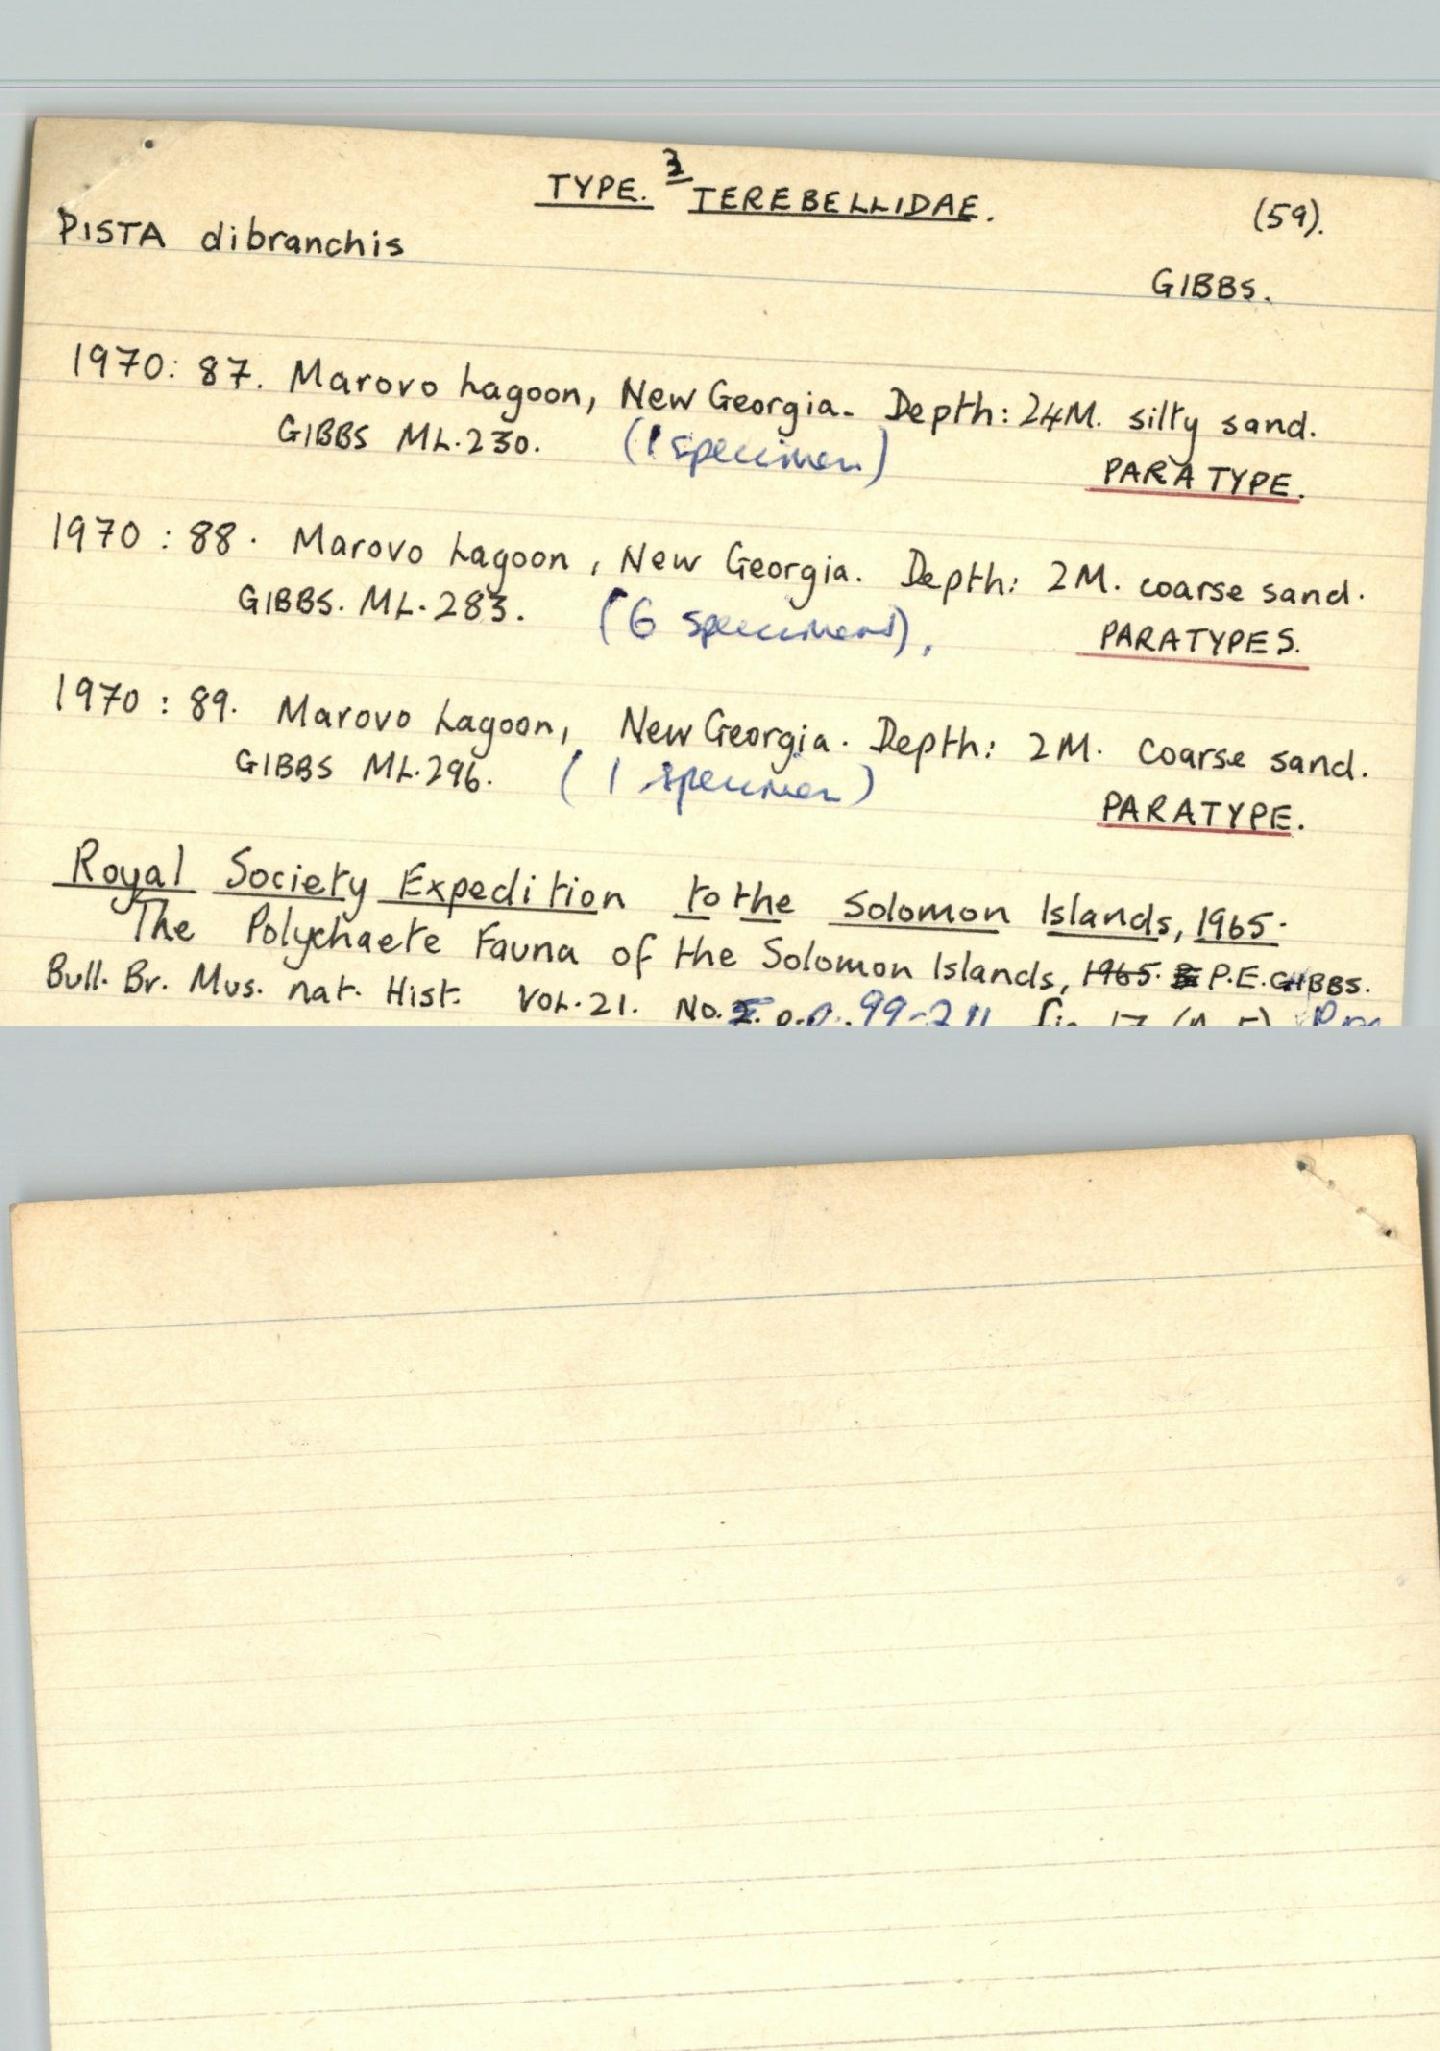 TYPE. 3 TEREBELLIDAE. (59).
PISTA dibranchis
GIBBS.
1970: 87. Marovo Lagoon, New Georgia. Depth: 24M. silty sand.
GIBBS ML.230. (1 specimen) PARATYPE.
1970: 88. Marovo Lagoon, New Georgia. Depth: 2M. coarse sand.
GIBBS. ML.283. (6 specimens), PARATYPES.
1970: 89. Marovo Lagoon, New Georgia. Depth: 2M. coarse sand.
GIBBS ML.296. (1 specimen) PARATYPE.
Royal Society Expedition to the Solomon Islands, 1965.
The Polychaete Fauna of the Solomon Islands, 1965. P.E. GIBBS.
Bull. Br. Mus. nat. Hist. VOL.21. No.